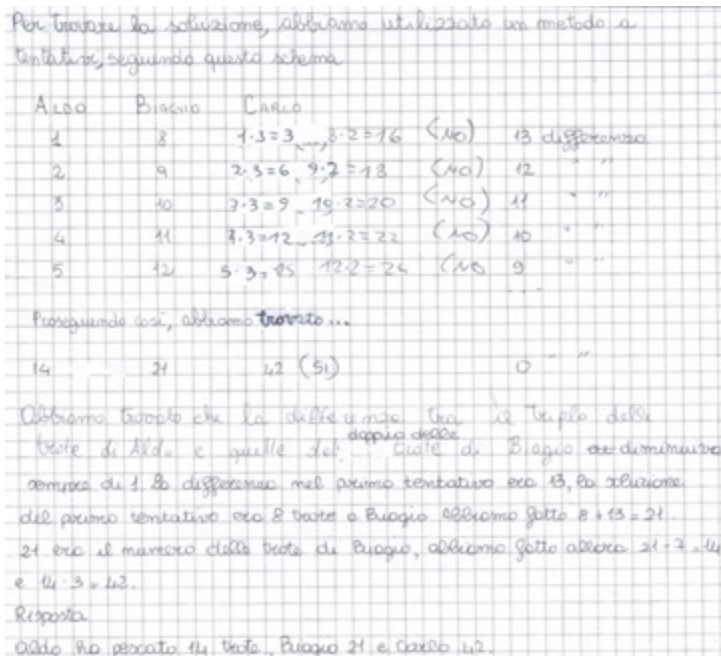 Per trovare la soluzione, abbiamo utilizzato un metodo a
tentativi, seguendo questo schema
ALDO BIAGIO CARLO
1 8 1·3=3 8·2=16 (NO) 13 differenza
2 9 2·3=6 9·2=18 (NO) 12 " "
3 10 3·3=9 10·2=20 (NO) 11 " "
4 11 4·3=12 11·2=22 (NO) 10 " "
5 12 5·3=15 12·2=24 (NO 9 " "
Proseguendo così, abbiamo trovato...
14 21 42 (SI) 0 " "
Abbiamo trovato che la differenza tra il triplo delle
trote di Aldo e quelle del doppio delle trote di Biagio diminuiva
sempre di 1. La differenza nel primo tentativo era 13, la soluzione
del primo tentativo era 8 trote a Biagio abbiamo fatto 8+13=21.
21 era il numero delle trote di Biagio, abbiamo fatto allora 21-7=14
e 14·3=42.
Risposta
Aldo ha pescato 14 trote, Biagio 21 e Carlo 42.